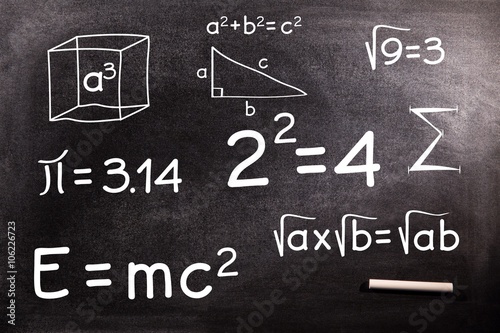 a²+b²=c²
√9=3
a³
a
c
b
π=3.14
2²=4
Σ
√ax√b=√ab
E=mc²
© adobestock | #106226723